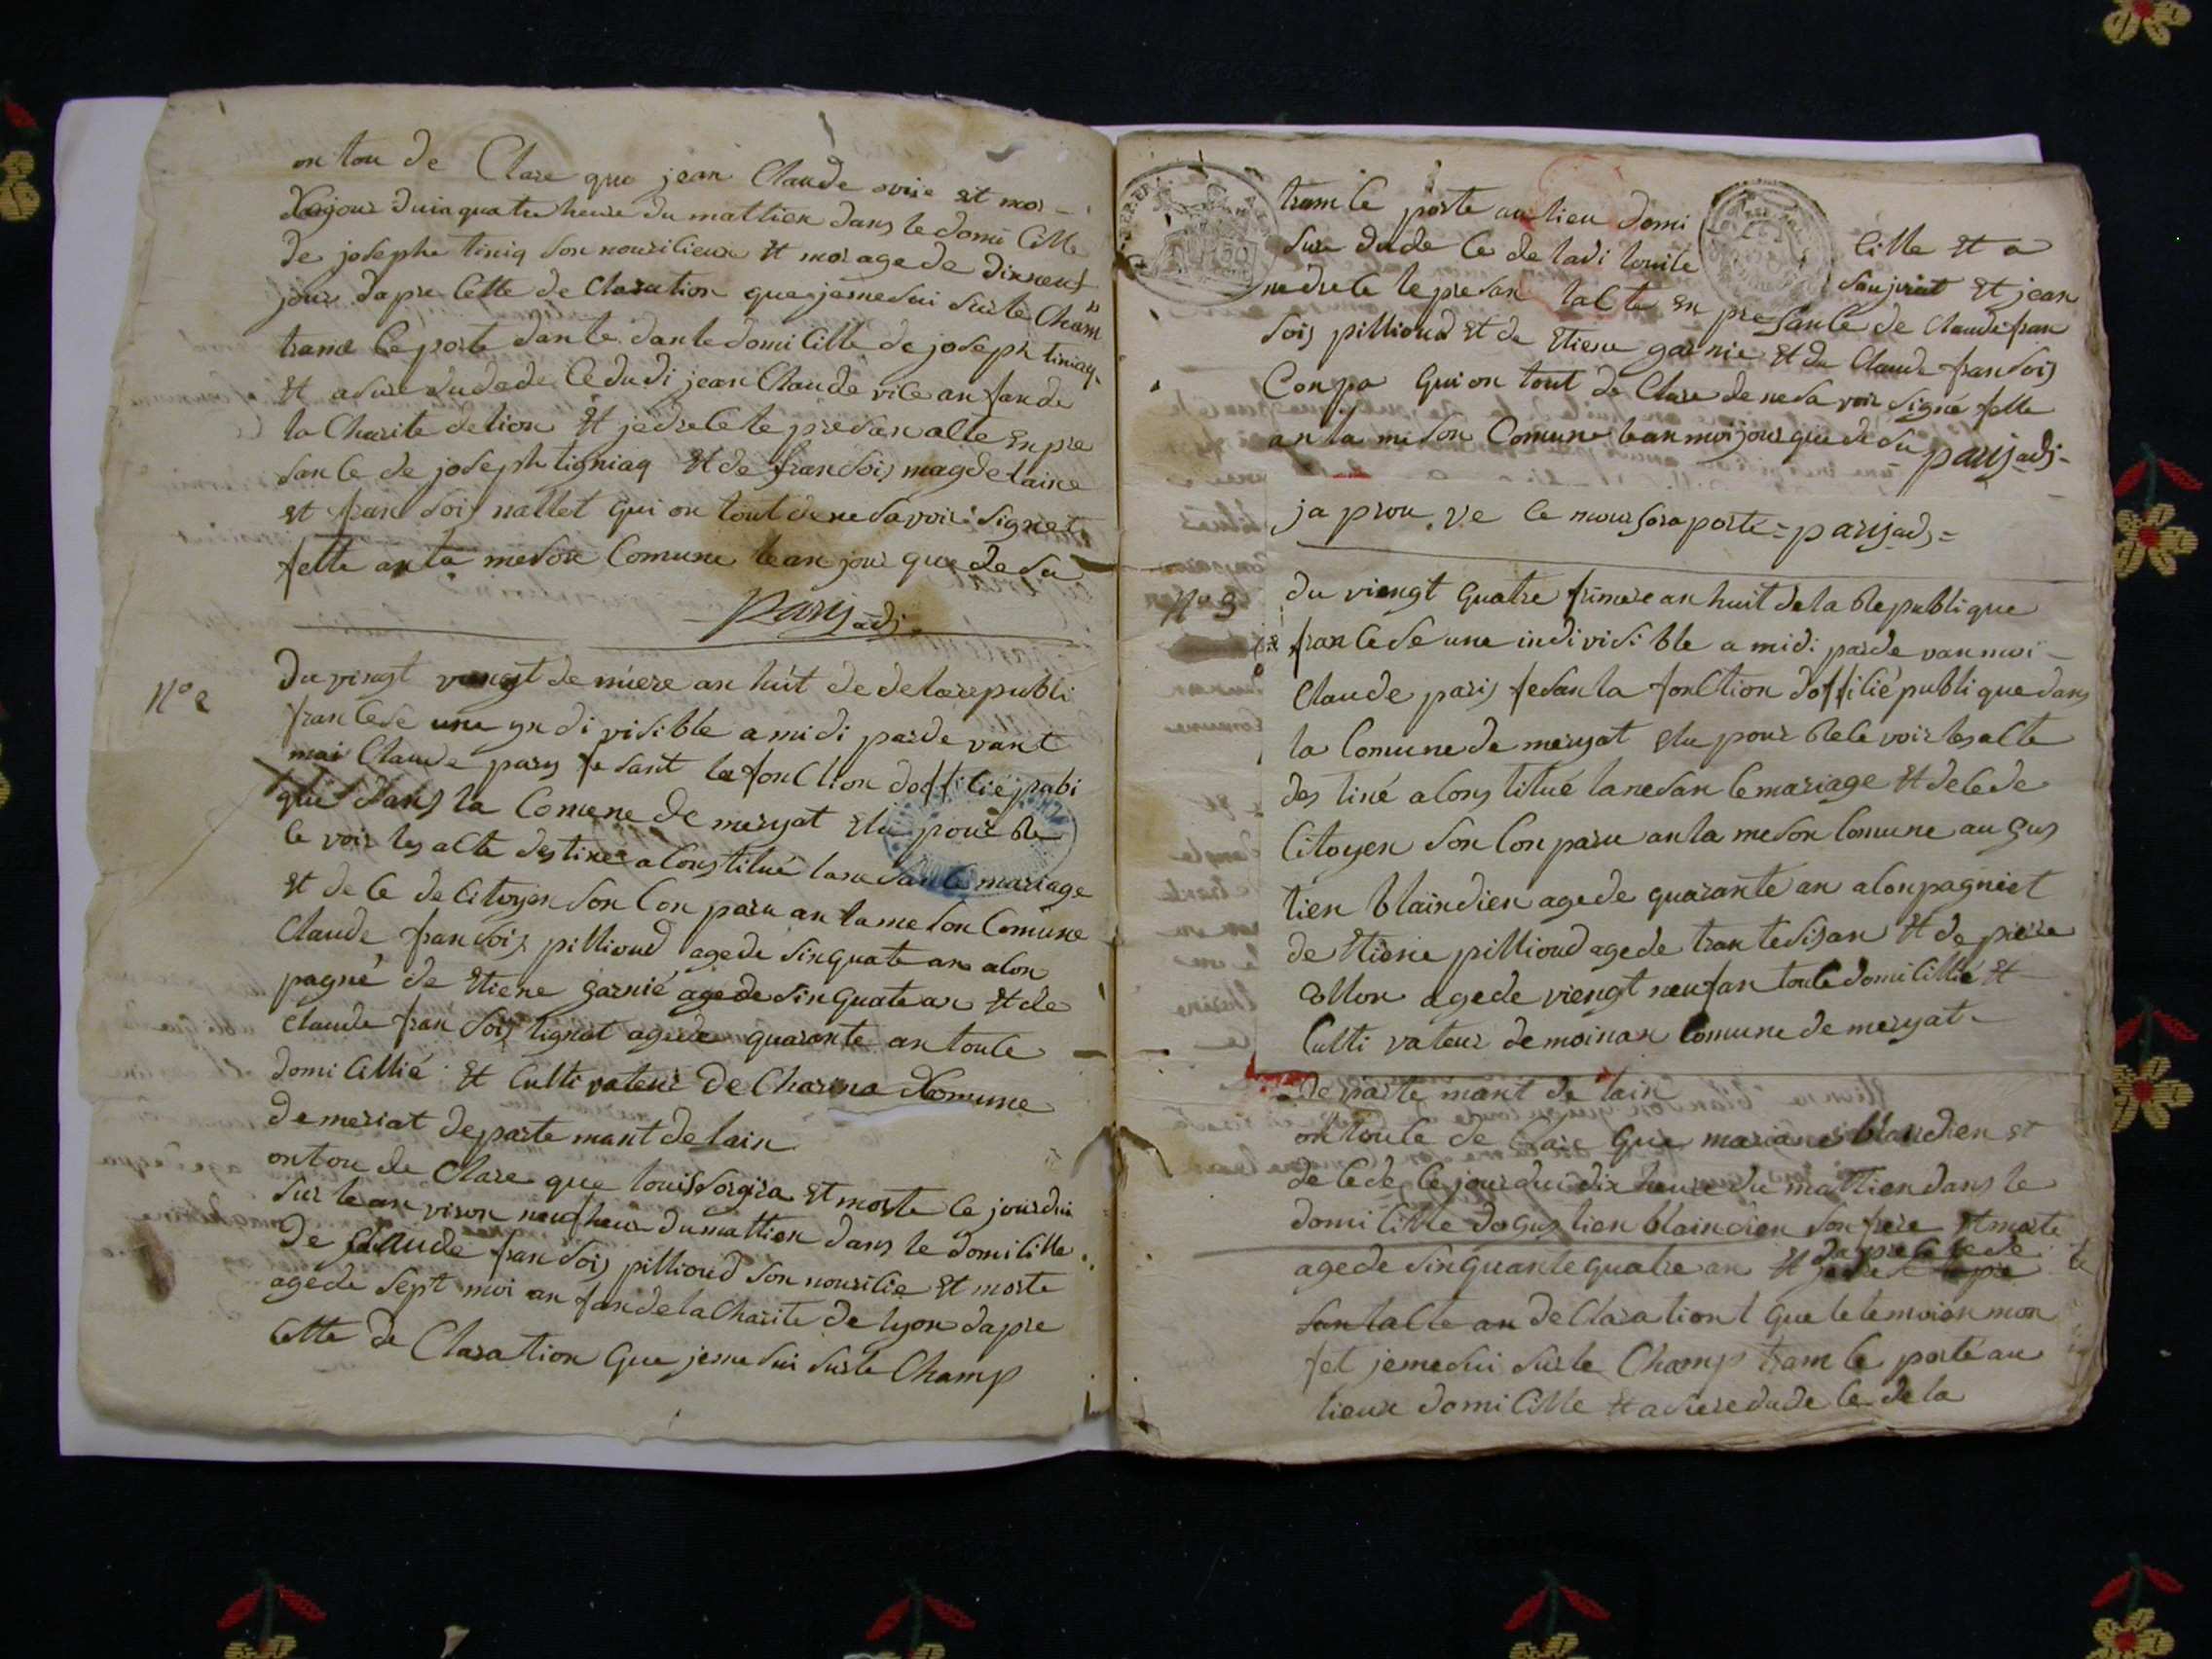 on tou de Clare que jean Claude vixe et mor-
aujour duin quatre heure du mattien dans le domi Cille
de josephe tiniq son nourilieux et mor agede dixneuf
jour dapre Cette de Claration que jemesui surle Cham
trans ceporte dante dante domi Cille de joseph tiniaq
et asure dudede Cedudi jean Claude vile an fande
la Charite delion et jedrecete presan alte en pre
sance de joseph tigniaq et de fransois magdelaine
et fran sois nallet qui on tout dene savoir signet
fette an la meson Comune lean jour que de su
parisadj
N° 2
du vingt vengt de miere an huit de de larepubli
francese une yn di visible amidi parde vant
moi Claude parys fesant la fonction dofficié pubi
que dans la Comene de meryat elu pour Re
ce voir les alte destinez a Constitué lanesan le mariage
et de Ce de Citoyen son Con paru an lameson Comune
Claude fran sois pillioud agede sinquate an alon
pagné de Etiene garnié agede sinquate an et de
Claude fran sois tignat agede quarante an toule
domi Cillié et Culti vateur de Charma Comune
de meriat departe mant delain
on tou de Clare que louis sorgira et morte Ce jourdui
sur le an viron neuf heur du mattien dans le domi Cille
de Claude fran sois pillioud son nourilie et morte
agede sept moi an fan de la Charite de lyon dapre
Cette de Claration que jeme sui surle Champ
tram le porte au lieu domi
Cille et a
sure dude Ce de ladi louite
saujirat et jean
nedrele le presan talte en pre sance de Claude fran
sois pillioud et de Etiene garnie et de Claude fransois
Conpa qui on tout de Clare de nesa voir signé fette
an la meson Comune lean moi jour que de su parisadj-
ja prou ve Ce mour sora porté = parisadj =
N° 3
du viengt quatre frimere an huit dela Republique
francese une indivisi ble a midi parde van moi -
Claude paris fesan la fonction dofficié publique dans
la Comune de meryat elu pour Rece voir les alte
des tiné alons titué lanesan le mariage et decede
Citoyen son Con paru an la meson Comune au gus
tien blaindien agede quarante an alonpagniet
de Etiene pillioud agede trante sisan et de piere
Collon agede viengt neufan toule domi Cillié et
Culti vateur de moinax Comune de meryat -
de parte mant de lain
on toule de Clare que mariane blaindien et
decede Ce jour dui dix heure du mattien dans le
domi Cille dogus tien blaindien son frere et morte
agede sinquante quatre an et dapre Ce te de
jedrece le pre
san talte an dellaration t que le temoien mon
fet jemesui surle Champ tram le porté au
lieux domi Cille et asure dude Ce de la